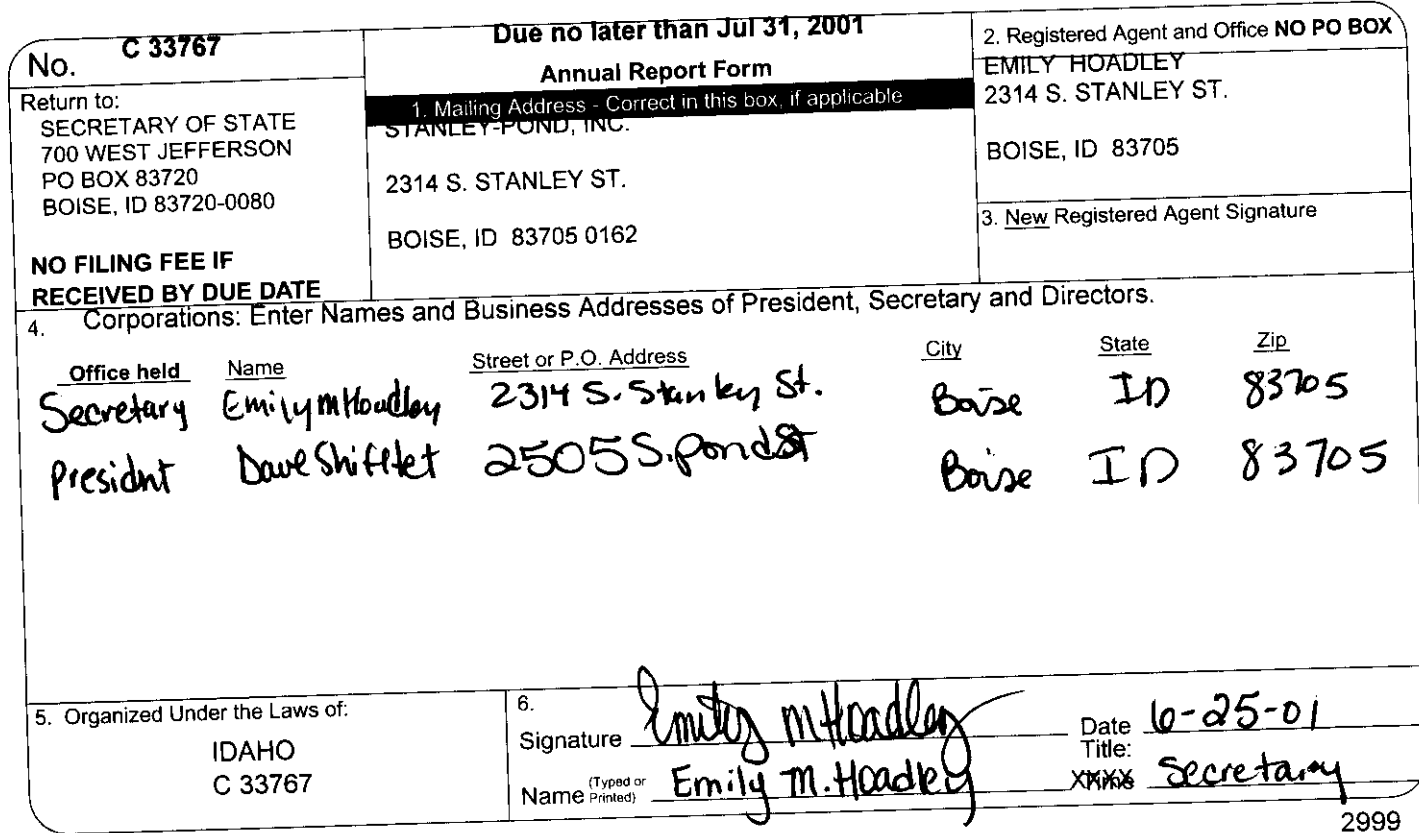 No. C 33767
Due no later than Jul 31, 2001
Annual Report Form
Return to:
SECRETARY OF STATE
700 WEST JEFFERSON
PO BOX 83720
BOISE, ID 83720-0080
NO FILING FEE IF
RECEIVED BY DUE DATE
1. Mailing Address - Correct in this box, if applicable
STANLEY-POND, INC.
2314 S. STANLEY ST.
BOISE, ID 83705 0162
2. Registered Agent and Office NO PO BOX
EMILY HOADLEY
2314 S. STANLEY ST.
BOISE, ID 83705
3. New Registered Agent Signature
4. Corporations: Enter Names and Business Addresses of President, Secretary and Directors.
Office held Name Street or P.O. Address City State Zip
Secretary Emily M Hoadley 2314 S. Stanley St. Boise ID 83705
Presidnt Dave Shifflet 2505 S. Pond St Boise ID 83705
5. Organized Under the Laws of:
IDAHO
C 33767
6.
Signature Emily M Hoadley Date 6-25-01
Name (Typed or Printed) Emily M. Hoadley Title: Secretary
2999